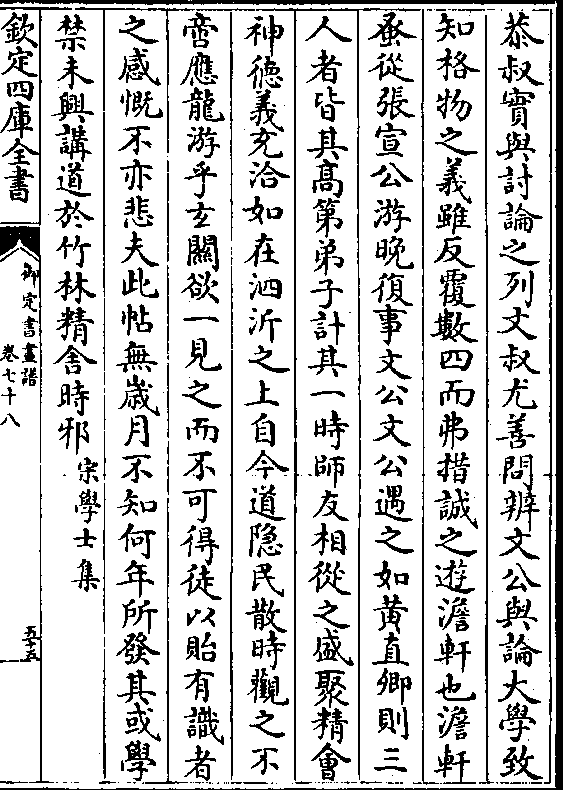 恭叔實與討論之列文叔尤善問辨文公與論大學致
知格物之義雖反覆數四而弗措誠之遊澹軒也澹軒
蚤從張宣公游晚復事文公文公遇之如黄直卿則三
人者皆其髙第弟子計其一時師友相從之盛聚精會
神徳義充洽如在泗沂之上自今道隐民散時觀之不
啻應龍游乎玄闗欲一見之而不可得徒以貽有識者
之感慨不亦悲夫此帖無嵗月不知何年所發其或學
禁未興講道於竹林精舍時邪 宋學士集
欽定四庫全書
御定書畫譜
卷七十八
五十五